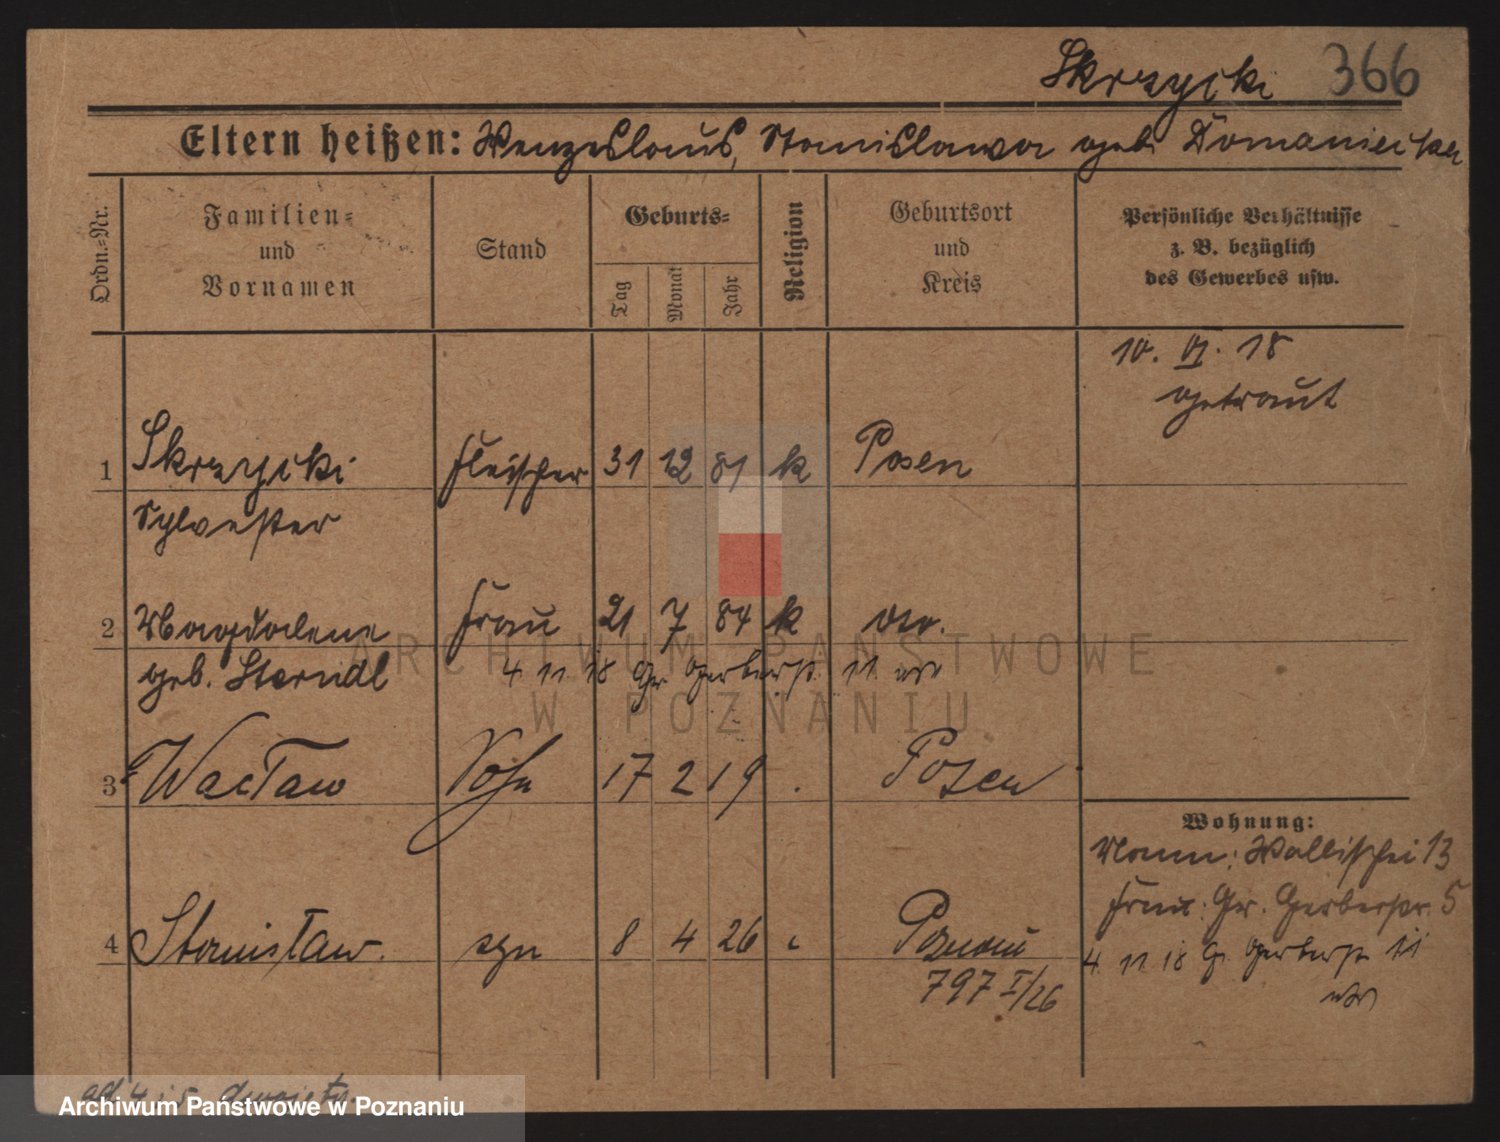 Skrzycki 366
Eltern heißen: Wenzeslaus, Stanislawa geb. Domaniecka
Ordn.-Nr.
Familien- und Vornamen
Stand
Geburts-
Tag
Monat
Jahr
Religion
Geburtsort und Kreis
Persönliche Verhältnisse z. B. bezüglich des Gewerbes usw.
10. VI. 18
getraut
1 Skrzycki Fleischer 31 12 81 k Posen
Sylvester
2 Magdalene Frau 21 7 84 k dto.
geb. Sterndl 4 11 18 Gr. Gerberst. 11
3 Wacław Sohn 17 2 19 Posen
Wohnung:
Mann: Wallischei 13
Frau: Gr. Gerberstr. 5
4 Stanisław syn 8 4 26 Poznań
4 11 18 Gr. Gerberst. 11
797 I/26
ad 4 i 5
ARCHIWUM PAŃSTWOWE
W POZNANIU
Archiwum Państwowe w Poznaniu